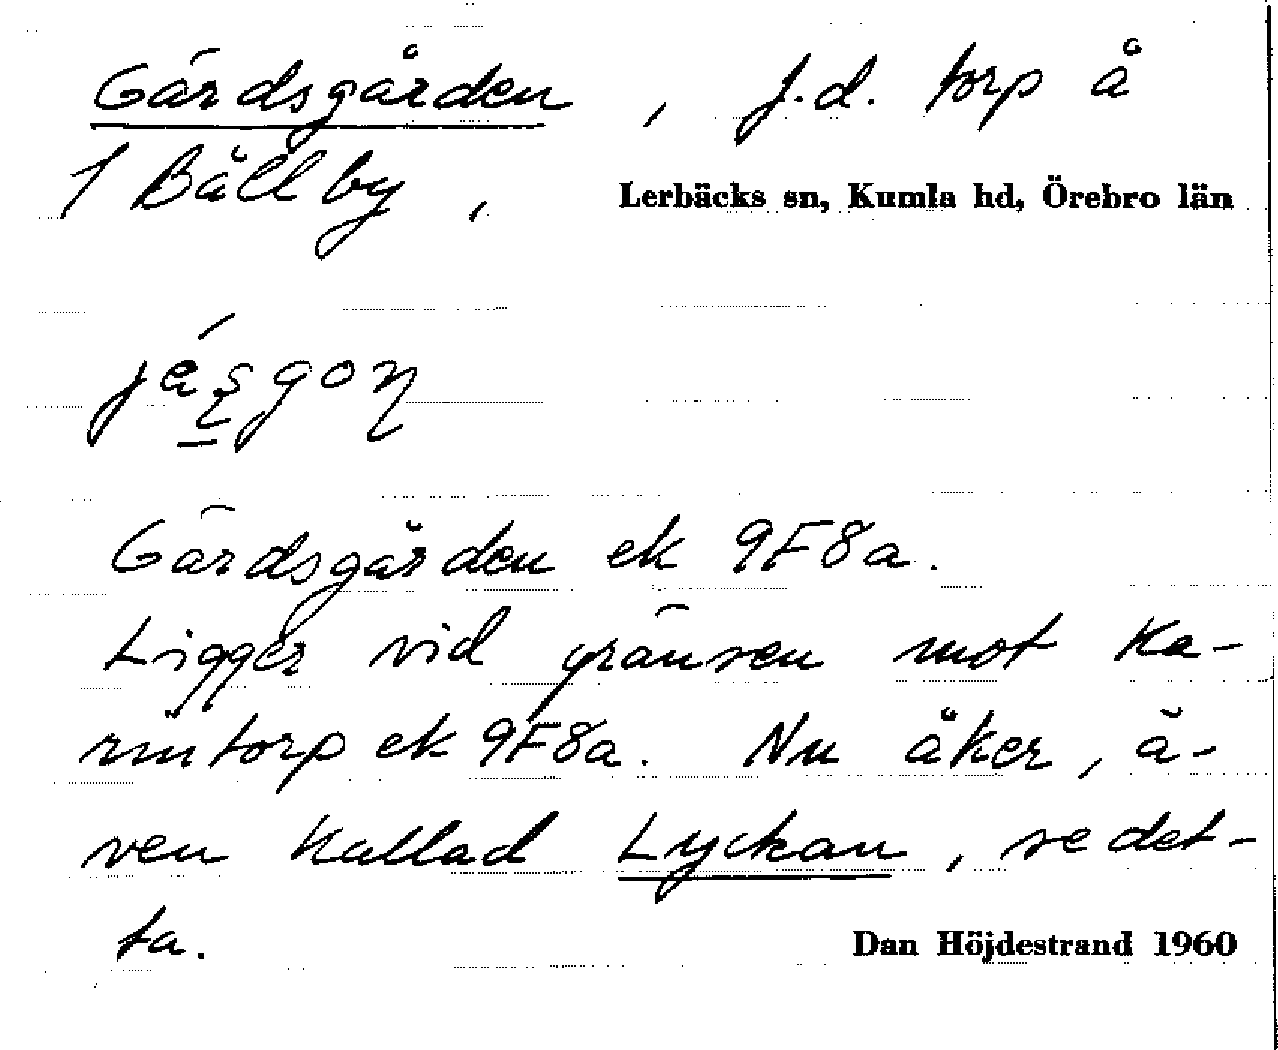 Gärdsgården, f.d. torp å
1 Bällby, Lerbäcks sn, Kumla hd, Örebro län
Gärdsgården ek 9F8a.
Ligger vid gränsen mot Ka-
rintorp ek 9F8a. Nu åker, ä-
ven kallad Lyckan, se det-
ta. Dan Höjdestrand 1960